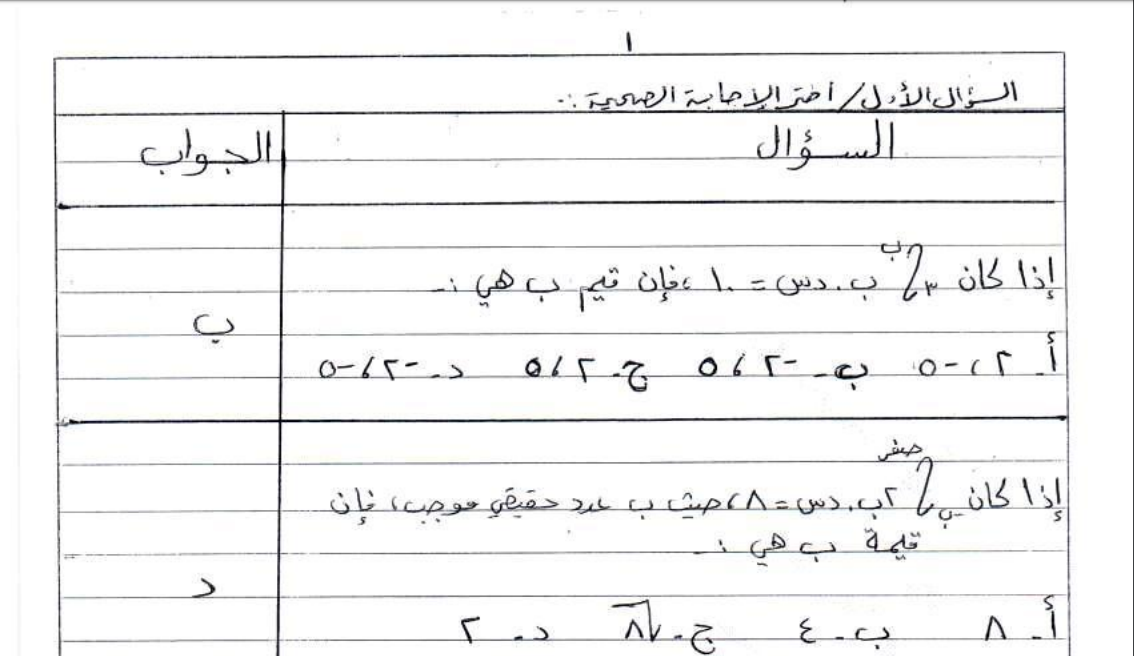 ١
السؤال الأول/ اختر الإجابة الصحيحة :-
السؤال الجواب
إذا كان ٣∫ب ب.دس = ١٠ ، فإن قيم ب هي :-
ب
أ- ٢ ، -٥ ب- -٢ ، ٥ ج- ٢ ، ٥ د- -٢ ، -٥
إذا كان -ب∫صفر ٢ب.دس = ٨ ، حيث ب عدد حقيقي موجب ، فإن
قيمة ب هي :-
د
أ- ٨ ب- ٤ ج- √٨ د- ٢